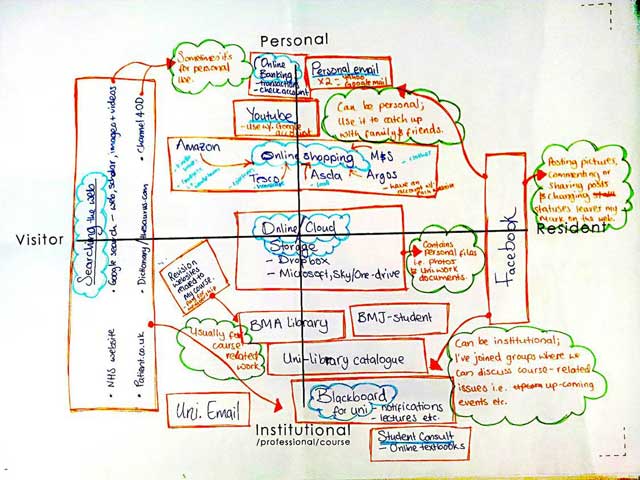 Personal
Sometimes it's
for personal
use.
Online
Banking
- transactions
- check account
Personal email
x2 -
Google mail
Youtube
- Use w. Google
account
Can be personal;
Use it to catch up
with family & friends.
Amazon
Online shopping
M&S
Tesco
Asda
Argos
- have an
account w.
Searching the web
• Google search – web, scholar, images + videos
• Channel 4OD
• Dictionary/thesaurus.com
• NHS website
• Patient.co.uk
Visitor
Resident
Facebook
Posting pictures,
commenting or
sharing posts
& changing
statuses leaves my
mark on the web.
Online/Cloud
Storage
- Dropbox
- Microsoft, Sky/One-drive
Contains
personal files
i.e. photos
& Uni work
documents.
Revision
websites
related to
my course.
BMA Library
BMJ-student
Usually for
course
related
work
Uni-library catalogue
Can be institutional;
I've joined groups where we
can discuss course-related
issues i.e. up-coming
events etc.
Blackboard
for uni
- notifications
- lectures etc.
Uni. Email
Institutional
/professional/course
Student Consult
- Online textbooks